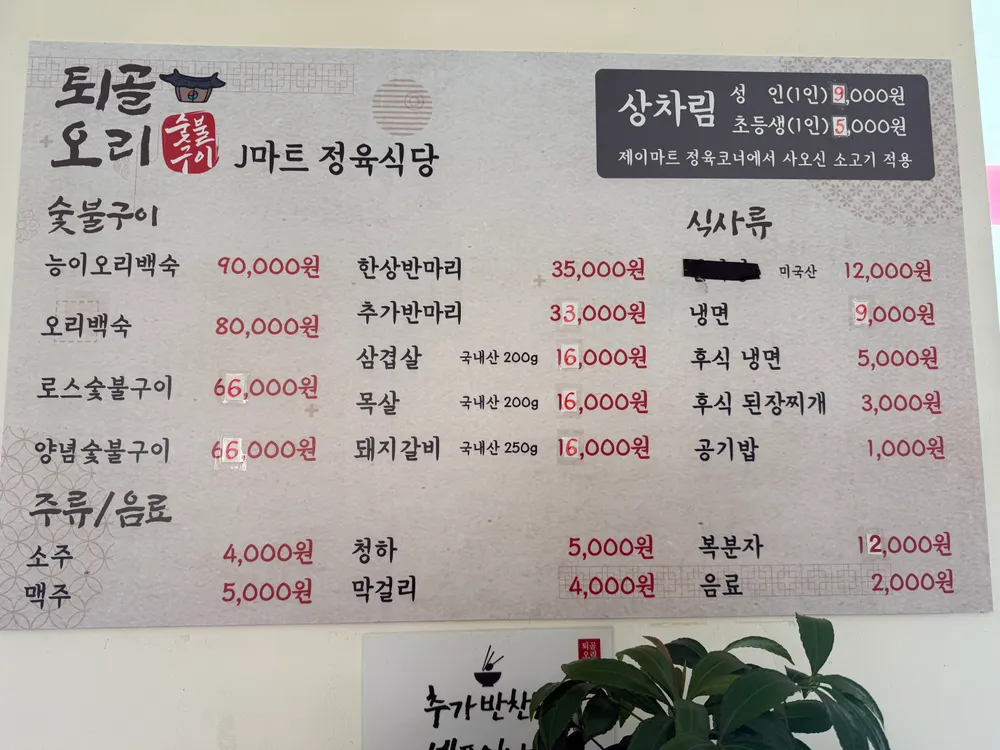 퇴골
오리
숯불
구이
J마트 정육식당
상차림
성 인(1인) 9,000원
초등생(1인) 5,000원
제이마트 정육코너에서 사오신 소고기 적용
숯불구이
능이오리백숙 90,000원
오리백숙 80,000원
로스숯불구이 66,000원
양념숯불구이 66,000원
한상반마리 35,000원
추가반마리 33,000원
삼겹살 국내산 200g 16,000원
목살 국내산 200g 16,000원
돼지갈비 국내산 250g 16,000원
식사류
미국산 12,000원
냉면 9,000원
후식 냉면 5,000원
후식 된장찌개 3,000원
공기밥 1,000원
주류/음료
소주 4,000원
맥주 5,000원
청하 5,000원
막걸리 4,000원
복분자 12,000원
음료 2,000원
퇴골
오리
추가반찬